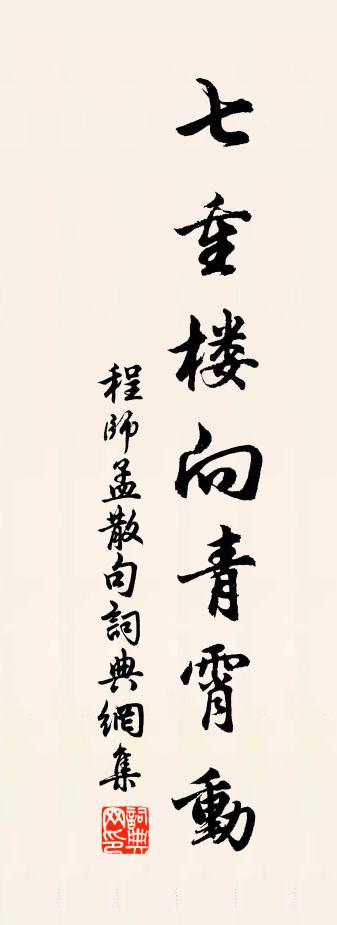 七重楼向青霄動
程師孟散句詞典網集
詞典网印